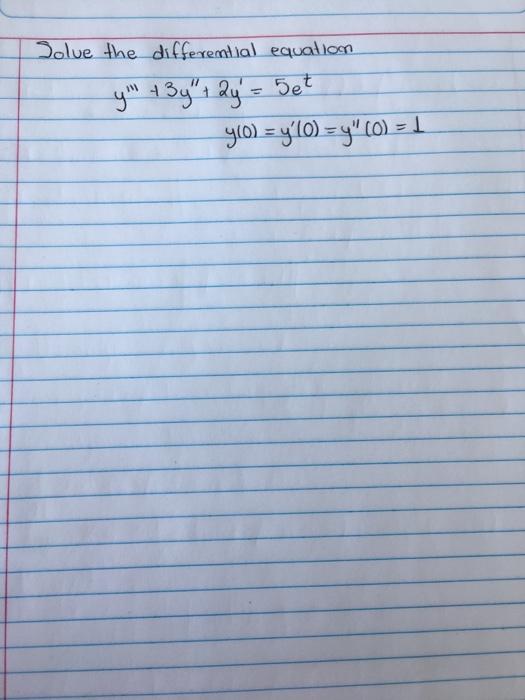 Solve the differential equation
y''' + 3y'' + 2y' = 5e^t
y(0) = y'(0) = y''(0) = 1